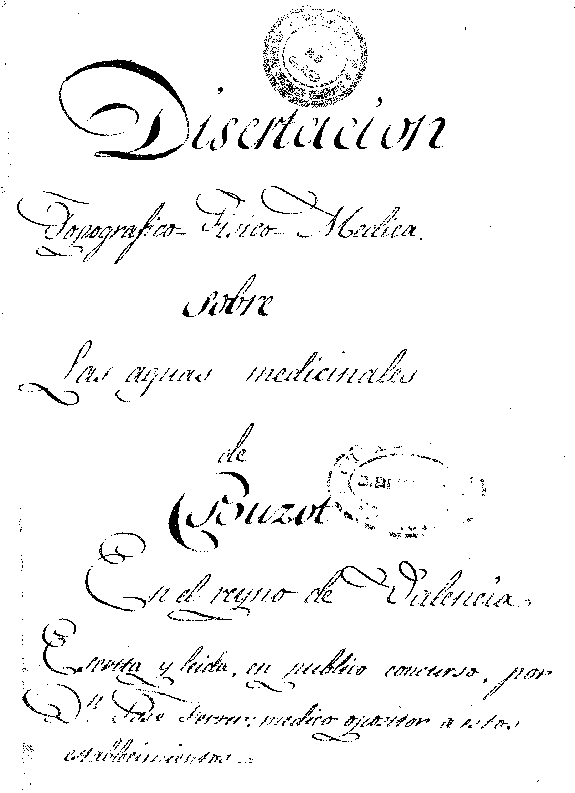 Disertacion
Topografico-Fisico-Medica.
sobre
Las aguas medicinales
de
Buzot
En el reyno de Valencia.
Escrita y leida, en publico concurso, por
Dn. Jose Ferrer: medico opositor a estos
establecimientos.